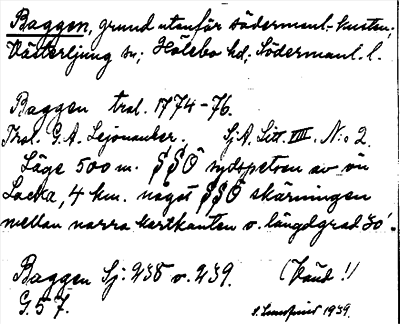 Baggen, grund utanför södermanl.-kusten;
Västerljung sn; Hölebo hd; Södermanl. l.
Baggen tral. 1774-76.
Tral. G. A. Lejonanker. SjA. Litt. VIII. N:o 2.
Läge 500 m. SSÖ sydspetsen av ön
Lacka, 4 km. något SSÖ skärningen
mellan norra kartkanten o. längdgrad 30'.
Baggen Sj: 238 o. 239. (Känd!)
G. 57. 1939.